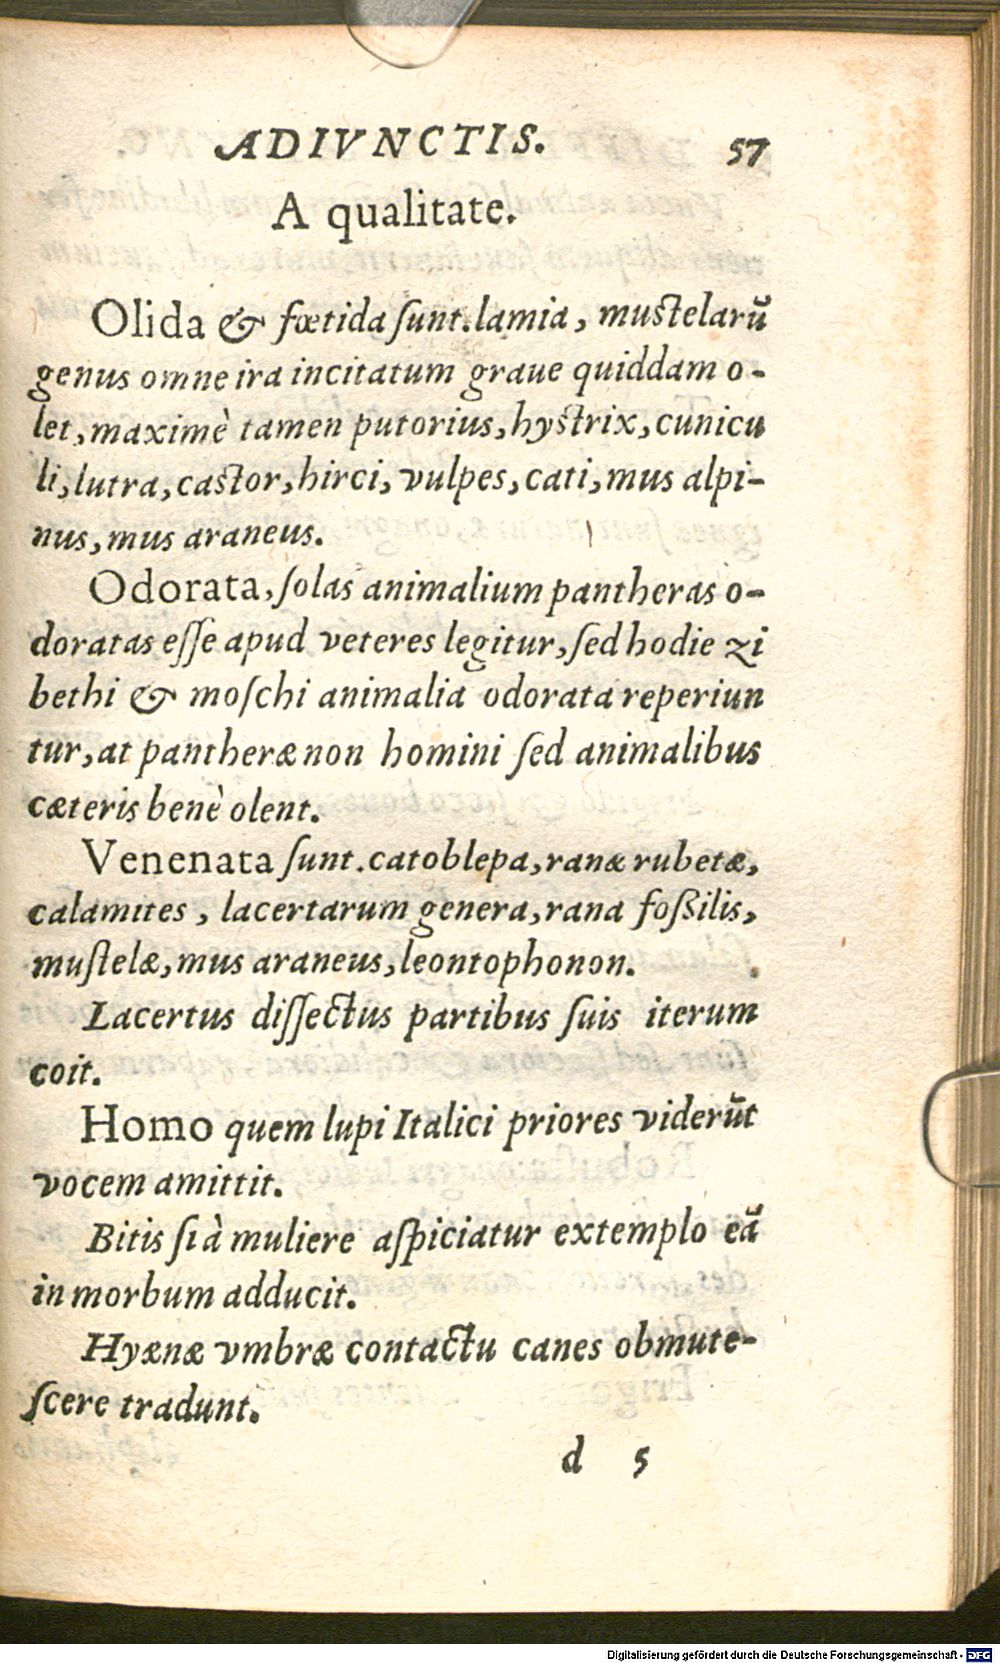 ADIVNCTIS. 57
A qualitate.
Olida & fœtida ſunt.lamia, muſtelarũ
genus omne ira incitatum graue quiddam o-
let, maximè tamen putorius, hyſtrix, cunicu
li, lutra, caſtor, hirci, vulpes, cati, mus alpi-
nus, mus araneus.
Odorata, ſolas animalium pantheras o-
doratas eſſe apud veteres legitur, ſed hodie zi
bethi & moſchi animalia odorata reperiun
tur, at pantheræ non homini ſed animalibus
cæteris benè olent.
Venenata ſunt.catoblepa, ranæ rubetæ,
calamites, lacertarum genera, rana foßilis,
muſtelæ, mus araneus, leontophonon.
Lacertus diſſectus partibus ſuis iterum
coit.
Homo quem lupi Italici priores viderũt
vocem amittit.
Bitis ſi à muliere aſpiciatur extemplo eã
in morbum adducit.
Hyænæ vmbræ contactu canes obmute-
ſcere tradunt.
d 5
Digitalisierung gefördert durch die Deutsche Forschungsgemeinschaft - DFG